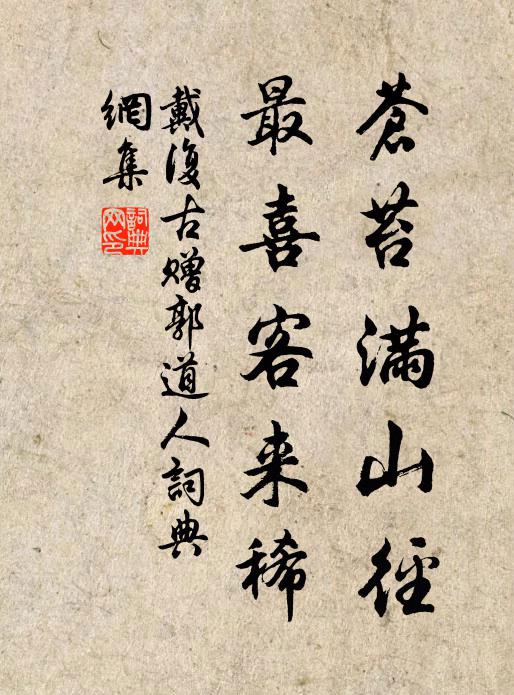 蒼苔滿山徑
最喜客来稀
戴復古贈郭道人詞典
網集
詞典網印